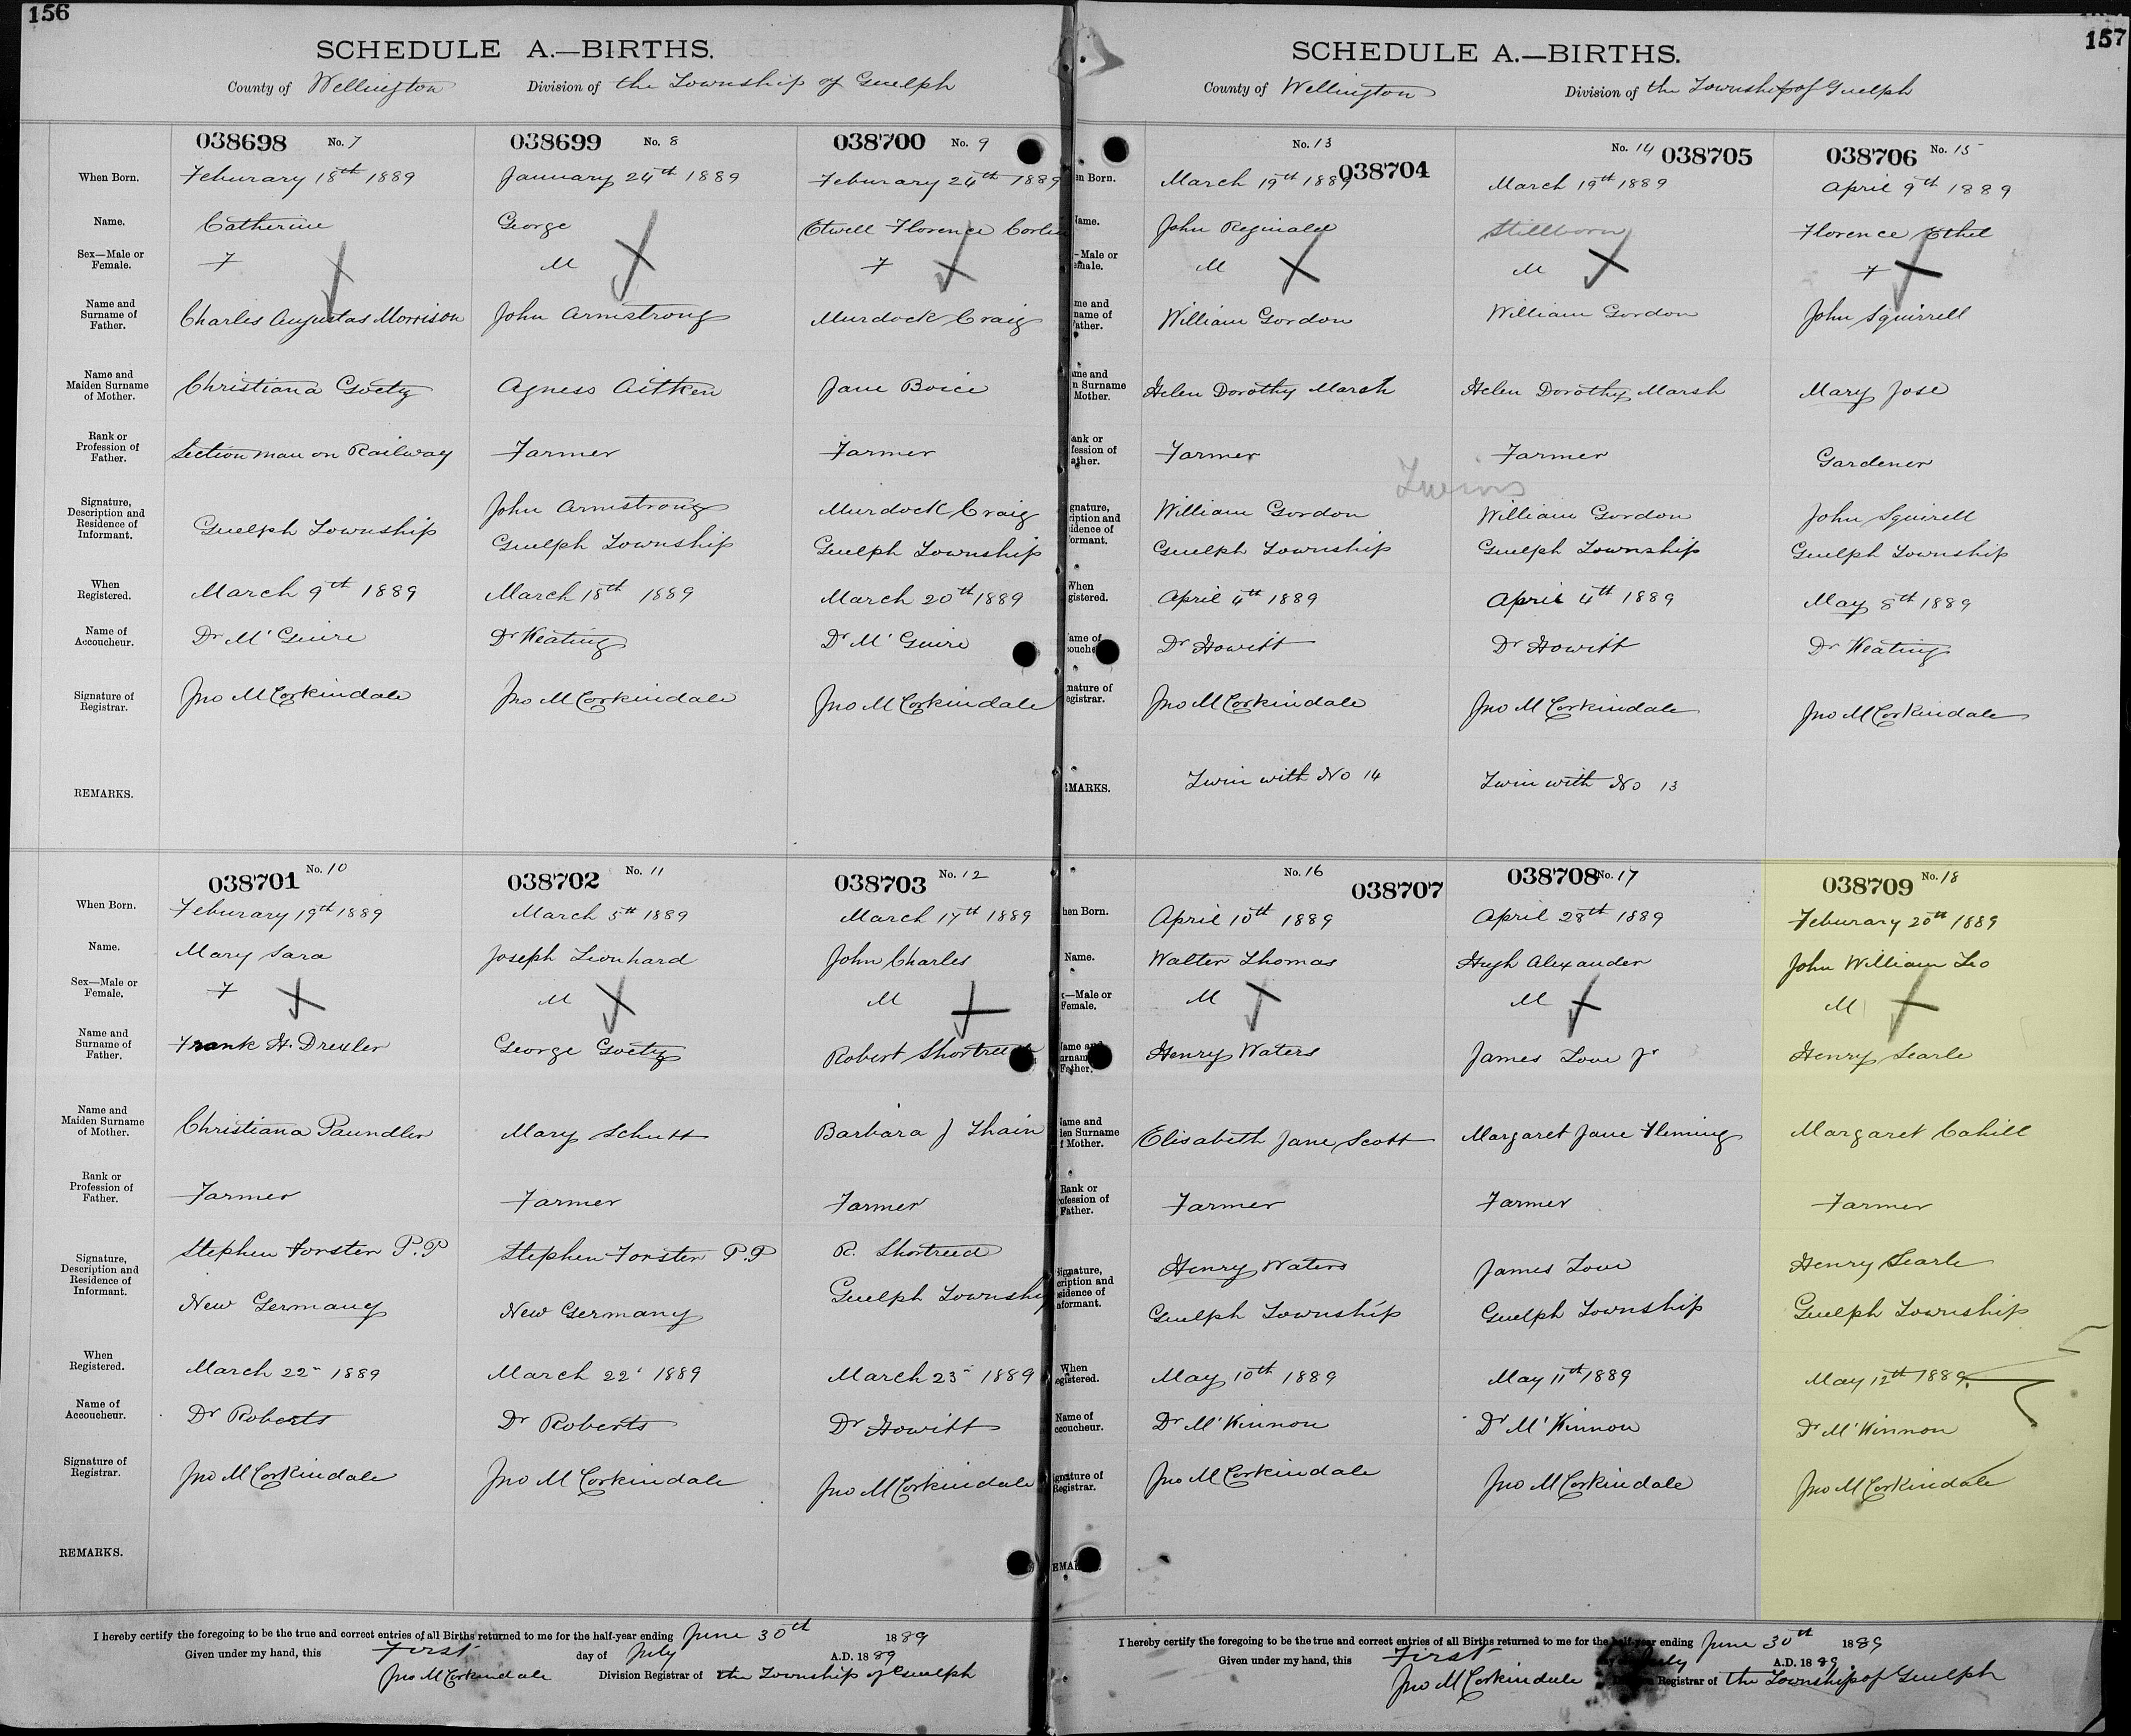 156
SCHEDULE A.—BIRTHS.
County of Wellington Division of the Township of Guelph
038698 No. 7 038699 No. 8 038700 No. 9
When Born. Feburary 18th 1889 January 24th 1889 Feburary 24th 1889
Name. Catherine George Etwell Florence
Sex—Male or Female. F M F
Name and Surname of Father. Charles Augustas Morrison John Armstrong Murdock Craig
Name and Maiden Surname of Mother. Christiana Goetz Agness Aitken Jane Boice
Rank or Profession of Father. Section man on Railway Farmer Farmer
Signature, Description and Residence of Informant. John Armstrong Murdock Craig
Guelph Township Guelph Township Guelph Township
When Registered. March 9th 1889 March 18th 1889 March 20th 1889
Name of Accoucheur. Dr M'Guire Dr Keating Dr M'Guire
Signature of Registrar. Jno McCorkindale Jno McCorkindale Jno McCorkindale
REMARKS.
038701 No. 10 038702 No. 11 038703 No. 12
When Born. Feburary 19th 1889 March 5th 1889 March 17th 1889
Name. Mary Sara Joseph Leonhard John Charles
Sex—Male or Female. F M M
Name and Surname of Father. Frank H. Drexler George Goetz Robert Shortreed
Name and Maiden Surname of Mother. Christiana Paundler Mary Schutt Barbara J Thain
Rank or Profession of Father. Farmer Farmer Farmer
Signature, Description and Residence of Informant. Stephen Forster P.P Stephen Forster P.P R. Shortreed
New Germany New Germany Guelph Township
When Registered. March 22 1889 March 22 1889 March 23 1889
Name of Accoucheur. Dr Roberts Dr Roberts Dr Howitt
Signature of Registrar. Jno McCorkindale Jno McCorkindale Jno McCorkindale
REMARKS.
I hereby certify the foregoing to be the true and correct entries of all Births returned to me for the half-year ending June 30th 1889
Given under my hand, this First day of July A.D. 1889
Jno McCorkindale Division Registrar of the Township of Guelph
157
SCHEDULE A.—BIRTHS.
County of Wellington Division of the Township of Guelph
No. 13 038704 No. 14 038705 038706 No. 15
en Born. March 19th 1889 March 19th 1889 April 9th 1889
ame. John Reginald Stillborn Florence Ethel
—Male or emale. M M F
me and name of ather. William Gordon William Gordon John Squirrell
me and n Surname Mother. Helen Dorothy Marsh Helen Dorothy Marsh Mary Jose
ank or fession of ather. Farmer Farmer Gardener
Twins
gnature, ription and idence of ormant. William Gordon William Gordon John Squirell
Guelph Township Guelph Township Guelph Township
When gistered. April 4th 1889 April 4th 1889 May 8th 1889
ame of ouche Dr Howitt Dr Howitt Dr Keating
nature of egistrar. Jno McCorkindale Jno McCorkindale Jno McCorkindale
EMARKS. Twin with No 14 Twin with No 13
No. 16 038707 038708 No. 17 038709 No. 18
hen Born. April 10th 1889 April 28th 1889 Feburary 20th 1889
Name. Walter Thomas Hugh Alexander John William Leo
x—Male or Female. M M M
ame and urnam Father. Henry Waters James Love Jr Henry Searle
ame and den Surname f Mother. Elisabeth Jane Scott Margaret Jane Fleming Margaret Cahill
Rank or ofession of Father. Farmer Farmer Farmer
ignature, cription and sidence of nformant. Henry Waters James Love Henry Searle
Guelph Township Guelph Township Guelph Township
When egistered. May 10th 1889 May 11th 1889 May 12th 1889
Name of ccoucheur. Dr M'Kinnon Dr M'Kinnon Dr M'Kinnon
ignature of Registrar. Jno McCorkindale Jno McCorkindale Jno McCorkindale
EMA
I hereby certify the foregoing to be the true and correct entries of all Births returned to me for the half-year ending June 30th 1889
Given under my hand, this First July A.D. 1889
Jno McCorkindale Registrar of the Township of Guelph